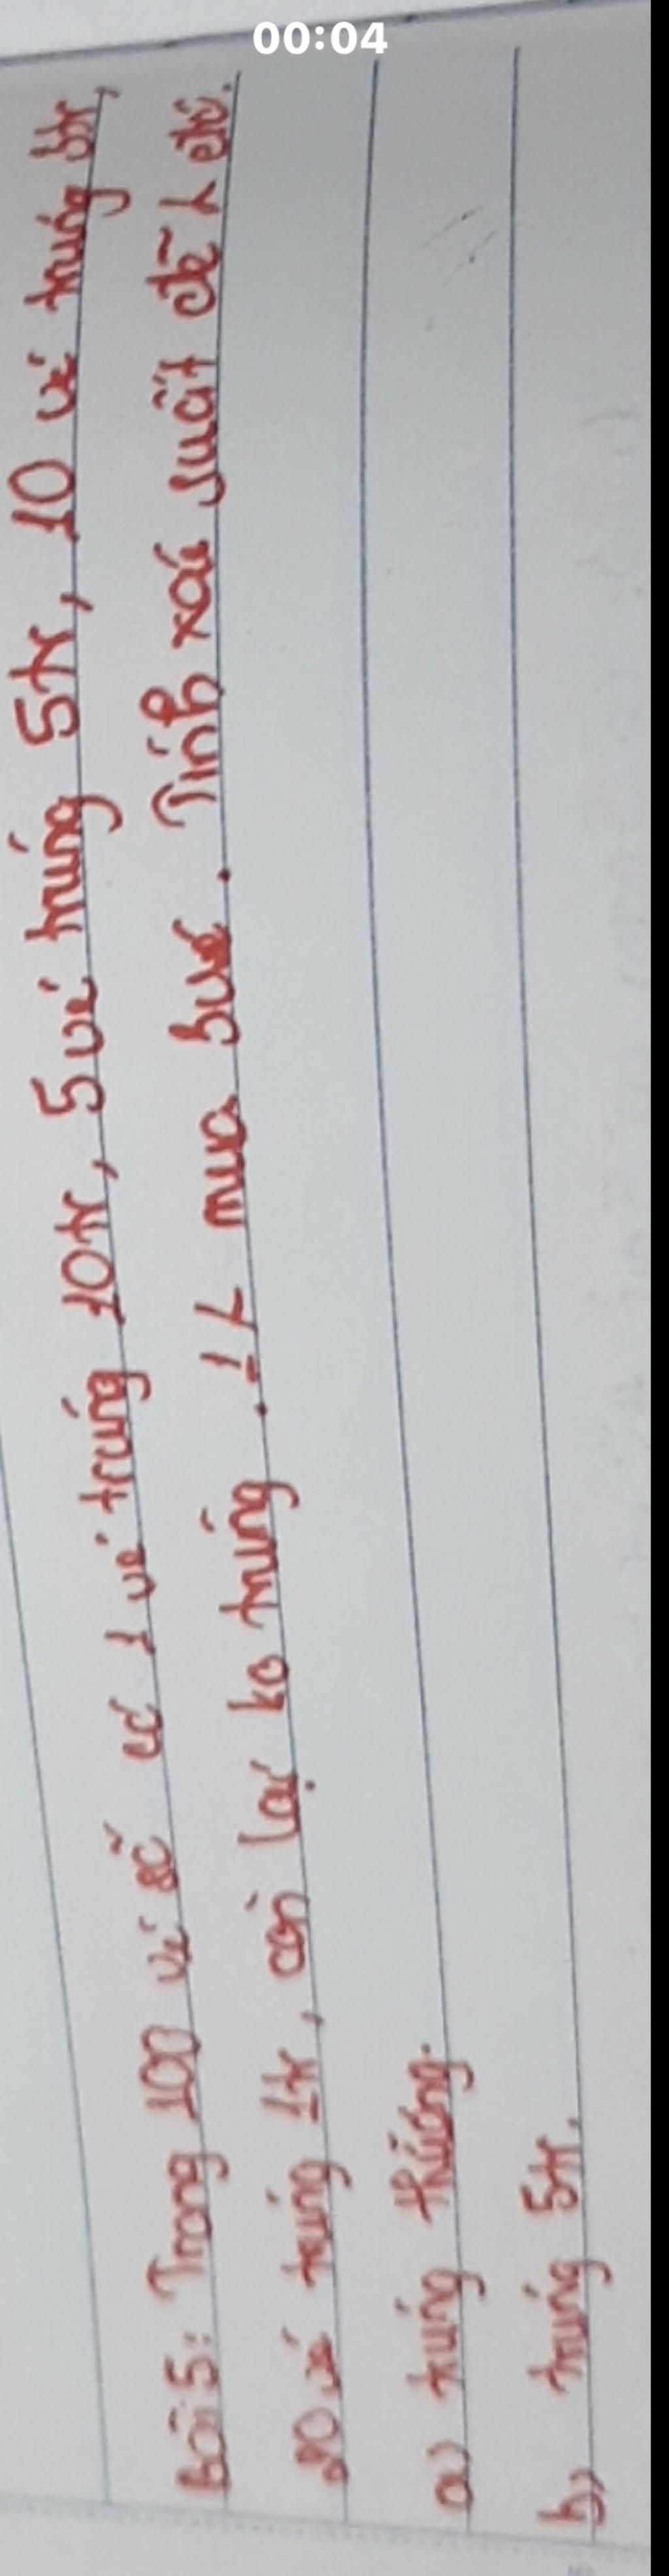 00:04
Bài 5: Trong 100 vé số có 1 vé trúng 10tr, 5 vé trúng 5tr, 10 vé trúng
20 vé trúng 1tr, còn lại ko trúng. 1 mua 3vé. Tính xác suất để 1 chị.
a) trúng thưởng.
b) trúng 5tr.